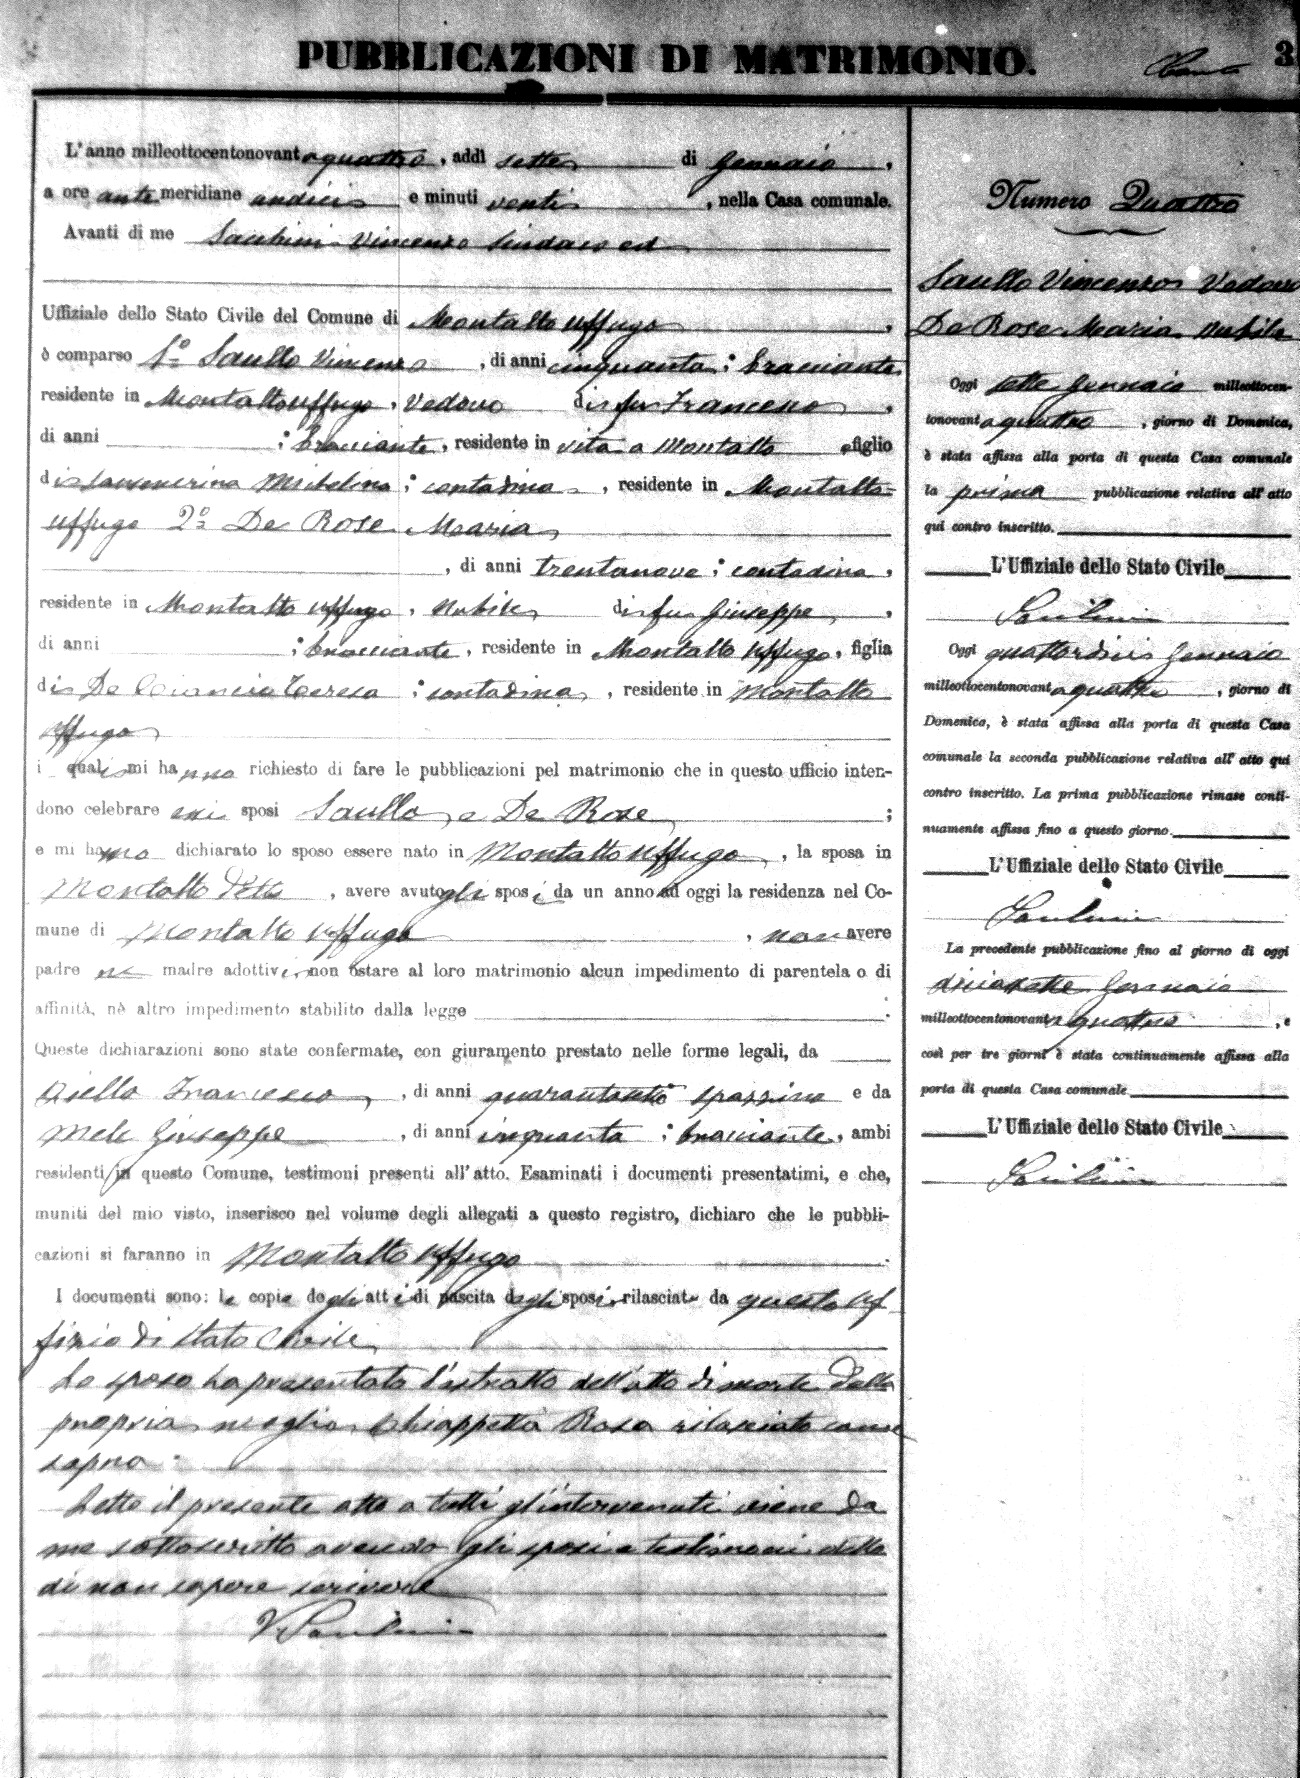 PUBBLICAZIONI DI MATRIMONIO.
3
L'anno milleottocentonovantaquattro, addì sette di Gennaio,
a ore antemeridiane undici e minuti venti, nella Casa comunale.
Avanti di me Vincenzo Sindaco ed
Uffiziale dello Stato Civile del Comune di Montalto Uffugo,
è comparso 1º Saullo Vincenzo, di anni cinquanta; bracciante
residente in Montalto Uffugo, Vedovo di fu Francesco,
di anni ; bracciante, residente in vita a Montalto e figlio
di Michelina; contadina, residente in Montalto
Uffugo 2º De Rose Maria
, di anni trentanove; contadina,
residente in Montalto Uffugo, nubile di fu Giuseppe,
di anni ; bracciante, residente in Montalto Uffugo, figlia
di Teresa; contadina, residente in Montalto
Uffugo
i quali mi hanno richiesto di fare le pubblicazioni pel matrimonio che in questo ufficio inten-
dono celebrare essi sposi Saullo e De Rose;
e mi hanno dichiarato lo sposo essere nato in Montalto Uffugo, la sposa in
Montalto detto, avere avuto gli sposi da un anno ad oggi la residenza nel Co-
mune di Montalto Uffugo, non avere
padre nè madre adottivi, non ostare al loro matrimonio alcun impedimento di parentela o di
affinità, nè altro impedimento stabilito dalla legge .
Queste dichiarazioni sono state confermate, con giuramento prestato nelle forme legali, da
Aiello Francesco, di anni quarantotto spazzino e da
Mele Giuseppe, di anni cinquanta; bracciante, ambi
residenti in questo Comune, testimoni presenti all'atto. Esaminati i documenti presentatimi, e che,
muniti del mio visto, inserisco nel volume degli allegati a questo registro, dichiaro che le pubbli-
cazioni si faranno in Montalto Uffugo.
I documenti sono: le copie degli atti di nascita degli sposi, rilasciate da questo Uf
fizio di Stato Civile
Lo sposo ha presentato l'estratto dell'atto di morte della
propria moglie Chiappetta Rosa rilasciato come
sopra.
Letto il presente atto a tutti gl'intervenuti viene da
me sottoscritto avendo gli sposi e testimoni detto
di non sapere scrivere
Numero Quattro
Saullo Vincenzo Vedovo
De Rose Maria nubile
Oggi sette Gennaio milleottocen-
tonovantaquattro, giorno di Domenica,
è stata affissa alla porta di questa Casa comunale
la prima pubblicazione relativa all'atto
qui contro inscritto.
L'Uffiziale dello Stato Civile
Oggi quattordici Gennaio
milleottocentonovantaquattro, giorno di
Domenica, è stata affissa alla porta di questa Casa
comunale la seconda pubblicazione relativa all'atto qui
contro inscritto. La prima pubblicazione rimase conti-
nuamente affissa fino a questo giorno.
L'Uffiziale dello Stato Civile
La precedente pubblicazione fino al giorno di oggi
diciasette Gennaio
milleottocentonovantaquattro, e
così per tre giorni è stata continuamente affissa alla
porta di questa Casa comunale
L'Uffiziale dello Stato Civile